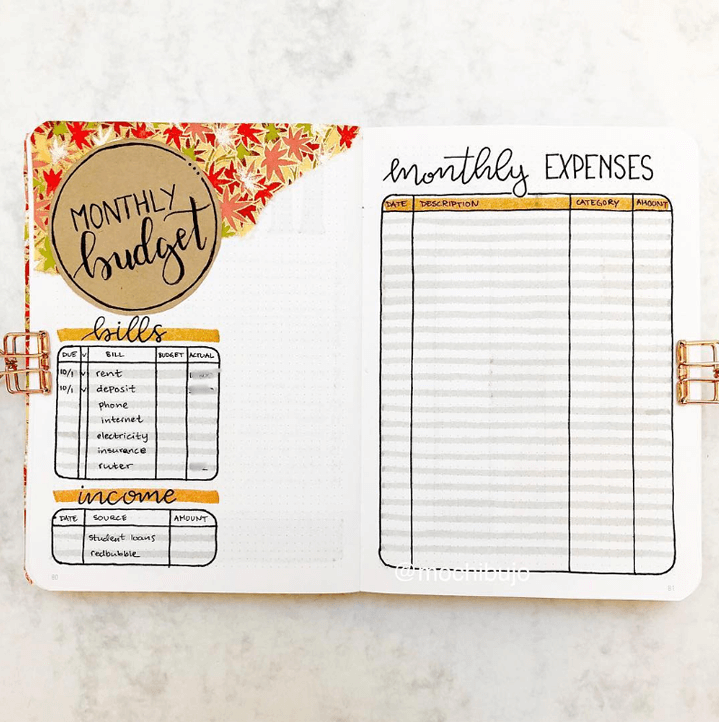 MONTHLY
budget
bills
DUE ✓ BILL BUDGET ACTUAL
10/1 ✓ rent
10/1 ✓ deposit
phone
internet
electricity
insurance
ruter
income
DATE SOURCE AMOUNT
student loans
redbubble
80
monthly EXPENSES
DATE DESCRIPTION CATEGORY AMOUNT
@mochibujo
81